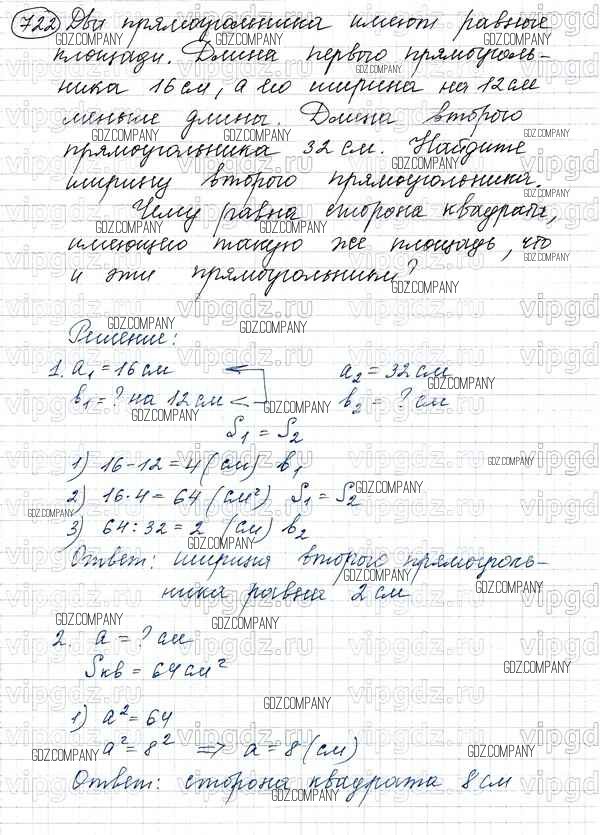 722 Два прямоугольника имеют равные
площади. Длина первого прямоуголь-
ника 16 см, а его ширина на 12 см
меньше длины. Длина второго
прямоугольника 32 см. Найдите
ширину второго прямоугольника.
Чему равна сторона квадрата,
имеющего такую же площадь, что
и эти прямоугольники?
Решение:
1. a₁ = 16 см a₂ = 32 см
b₁ = ? на 12 см b₂ = ? см
S₁ = S₂
1) 16 - 12 = 4 (см) b₁
2) 16 · 4 = 64 (см²) S₁ = S₂
3) 64 : 32 = 2 (см) b₂
Ответ: ширина второго прямоуголь-
ника равна 2 см
2. a = ? см
Sкв = 64 см²
1) a² = 64
a² = 8² => a = 8 (см)
Ответ: сторона квадрата 8 см
GDZ.COMPANY
vipgdz.ru